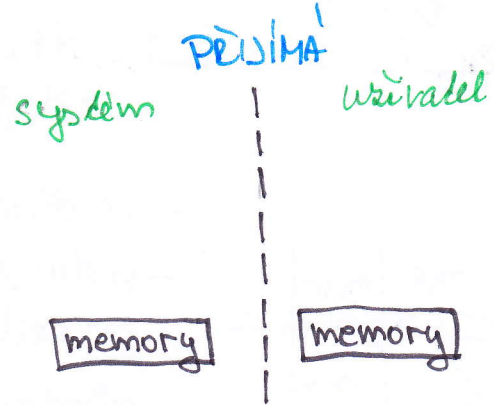 PŘIJÍMÁ
systém uživatel
memory memory